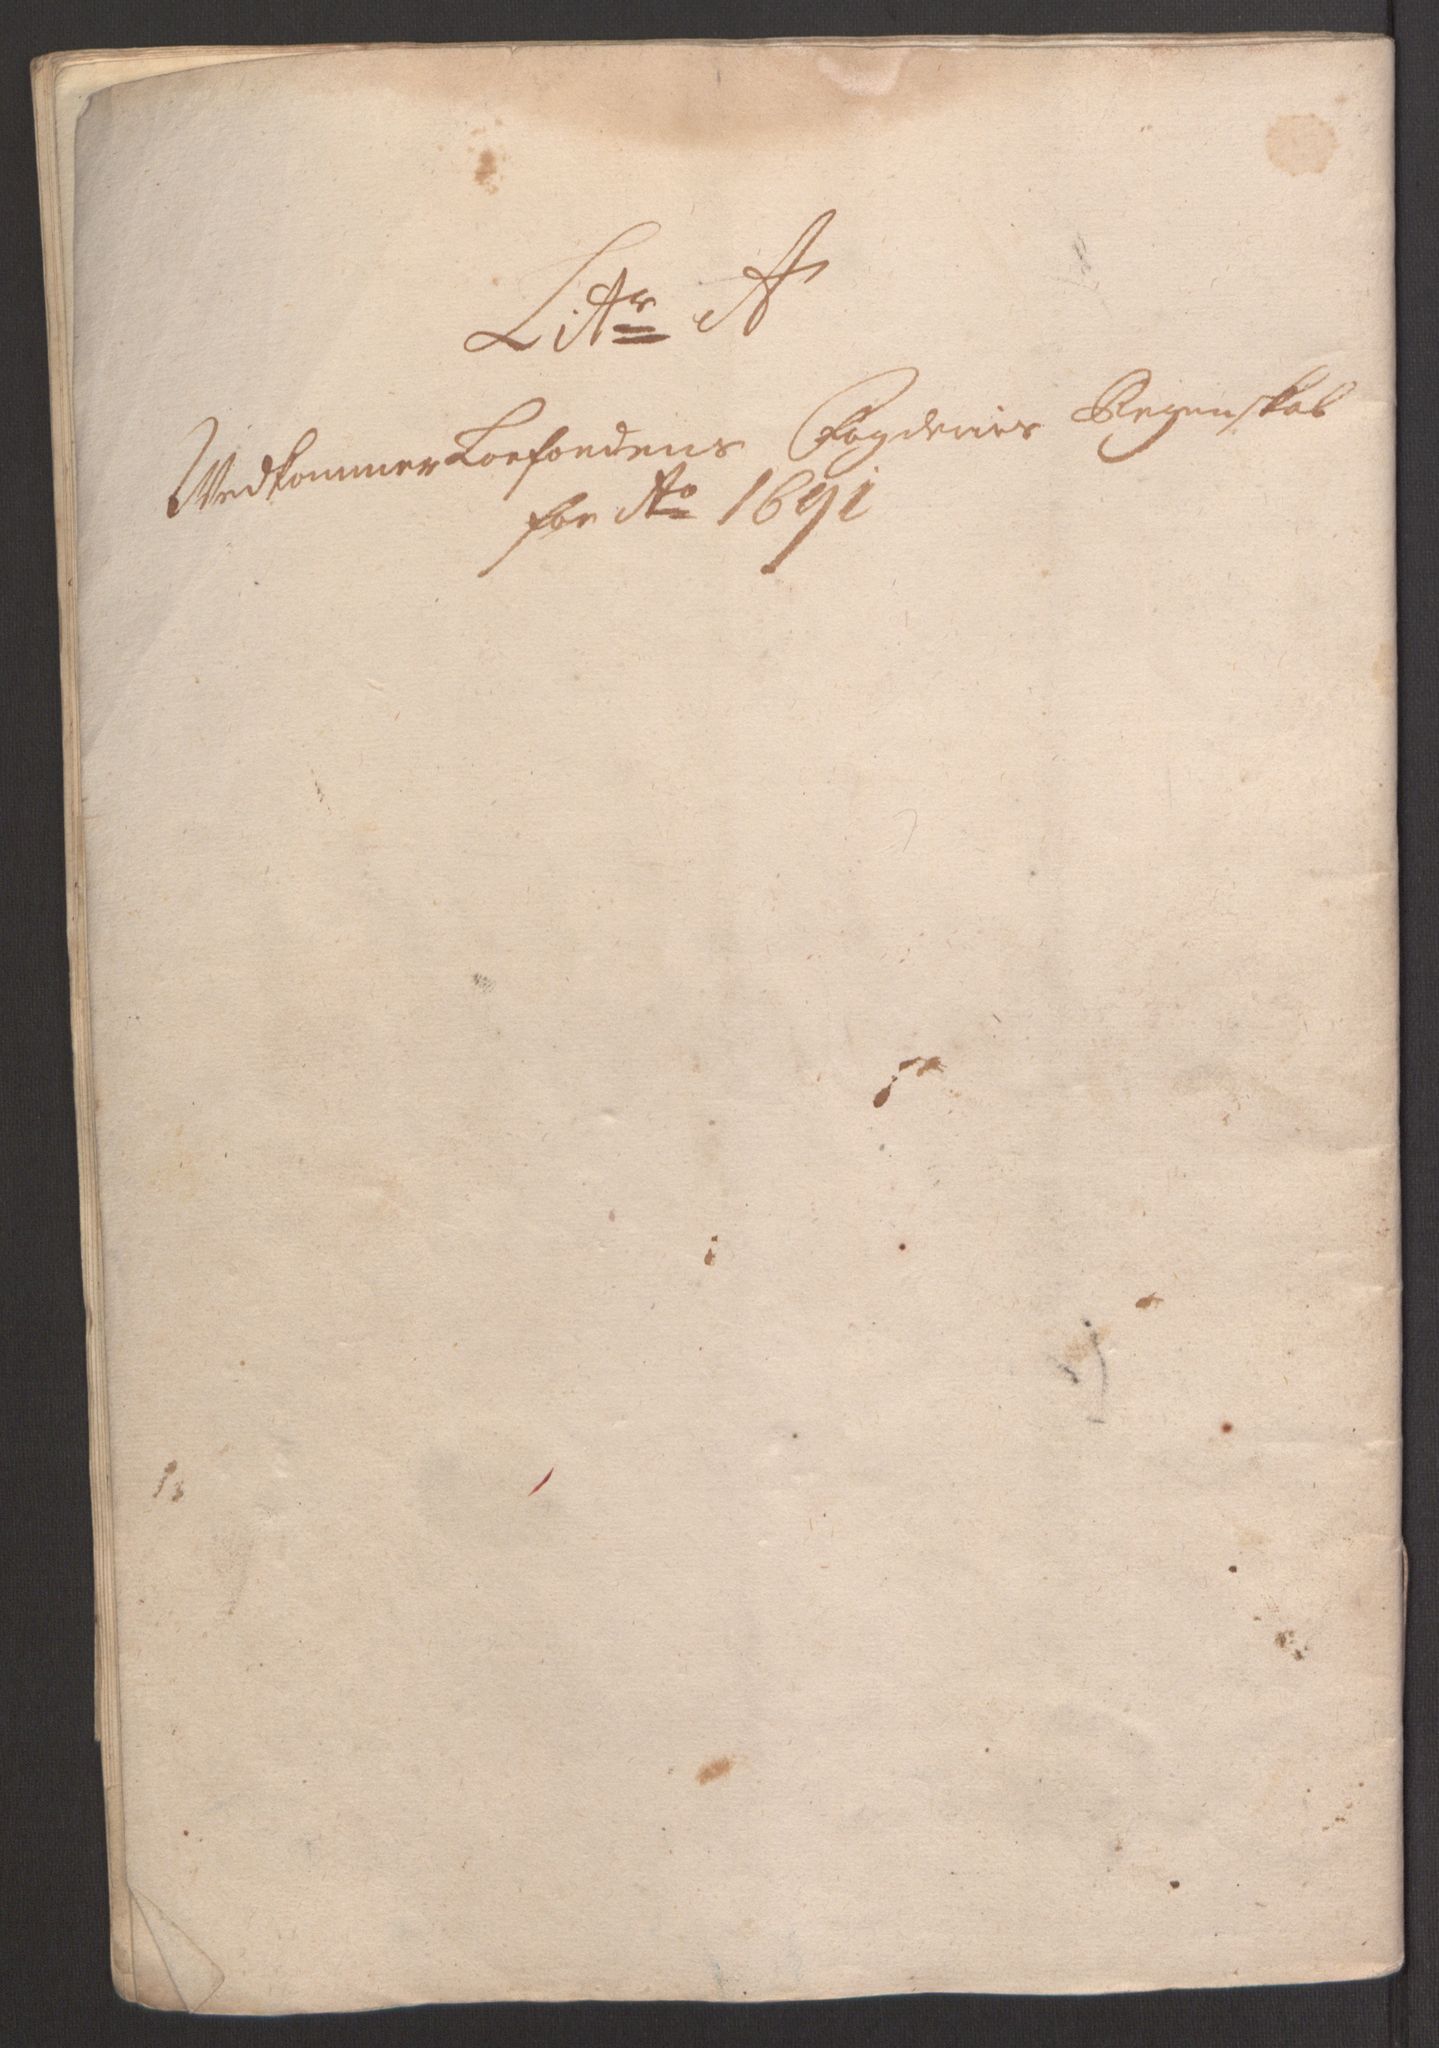 Litr A
Vedkommer Loefoedens Fogderies Regenskab
for Ao 1691